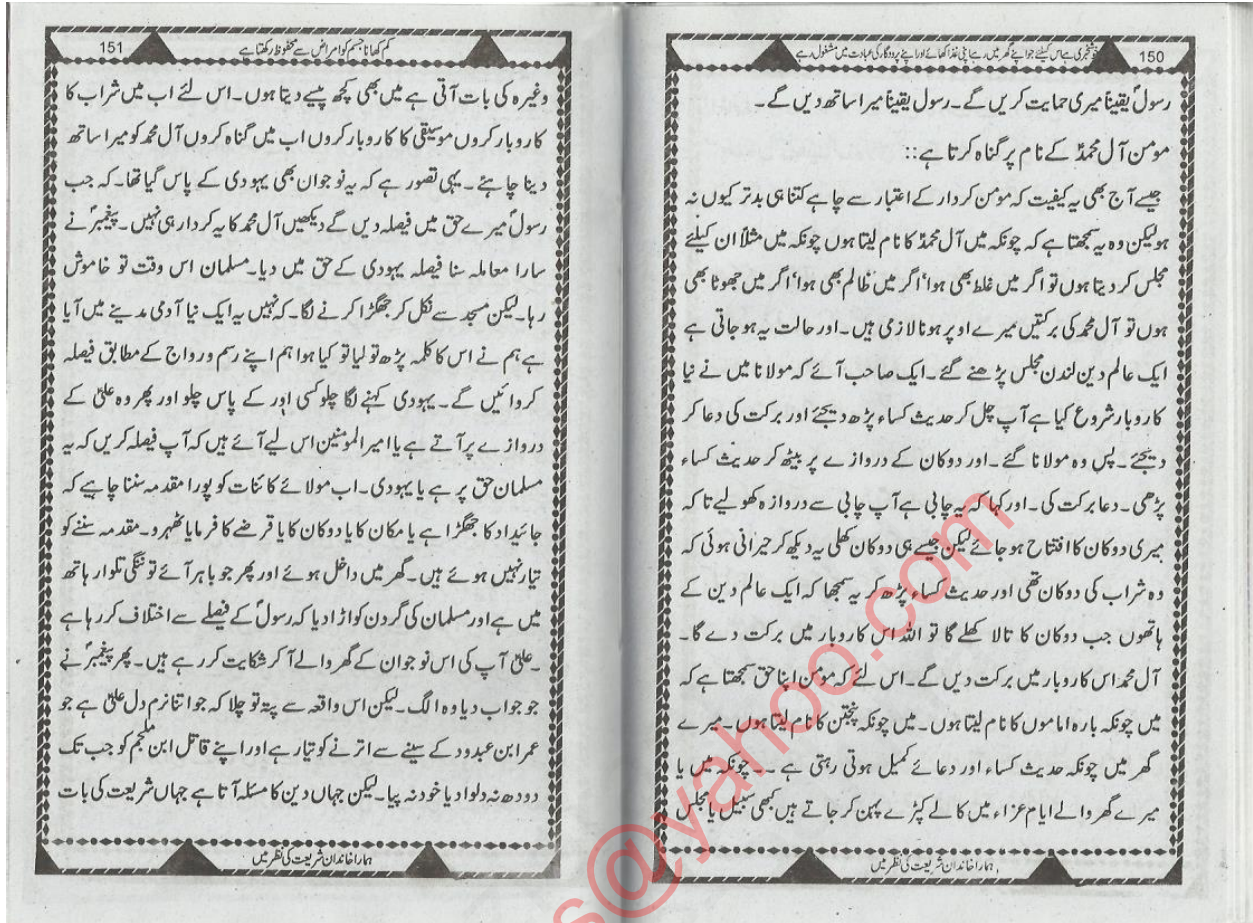 150
خوشخبری ہے اس کیلئے جو اپنے گھر میں رہے اپنی غذا کھائے اور اپنے پروردگار کی عبادت میں مشغول رہے
رسولؐ یقیناً میری حمایت کریں گے۔ رسول یقیناً میرا ساتھ دیں گے۔
مومن آل محمدؐ کے نام پر گناہ کرتا ہے::
جیسے آج بھی یہ کیفیت کہ مومن کردار کے اعتبار سے چاہے کتنا ہی بدتر کیوں نہ
ہو لیکن وہ یہ سمجھتا ہے کہ چونکہ میں آل محمدؐ کا نام لیتا ہوں چونکہ میں مثلاً ان کیلئے
مجلس کر دیتا ہوں تو اگر میں غلط بھی ہوا' اگر میں ظالم بھی ہوا' اگر میں جھوٹا بھی
ہوں تو آل محمد کی برکتیں میرے اوپر ہونا لازمی ہیں۔ اور حالت یہ ہو جاتی ہے
ایک عالم دین لندن مجلس پڑھنے گئے۔ ایک صاحب آئے کہ مولانا میں نے نیا
کاروبار شروع کیا ہے آپ چل کر حدیث کساء پڑھ دیجئے اور برکت کی دعا کر
دیجئے۔ پس وہ مولانا گئے۔ اور دوکان کے دروازے پر بیٹھ کر حدیث کساء
پڑھی۔ دعا برکت کی۔ اور کہا کہ یہ چابی ہے آپ چابی سے دروازہ کھولیے تاکہ
میری دوکان کا افتتاح ہو جائے لیکن جیسے ہی دوکان کھلی یہ دیکھ کر حیرانی ہوئی کہ
وہ شراب کی دوکان تھی اور حدیث کساء پڑھ کر یہ سمجھا کہ ایک عالم دین کے
ہاتھوں جب دوکان کا تالا کھلے گا تو اللہ اس کاروبار میں برکت دے گا۔
آل محمد اس کاروبار میں برکت دیں گے۔ اس لئے کہ مومن اپنا حق سمجھتا ہے کہ
میں چونکہ بارہ اماموں کا نام لیتا ہوں۔ میں چونکہ پنجتن کا نام لیتا ہوں۔ میرے
گھر میں چونکہ حدیث کساء اور دعائے کمیل ہوتی رہتی ہے۔۔ چونکہ میں یا
میرے گھر والے ایام عزاء میں کالے کپڑے پہن کر جاتے ہیں کبھی سبیل یا مجلس
ہمارا خاندان شریعت کی نظر میں
151
کم کھانا جسم کو امراض سے محفوظ رکھتا ہے
وغیرہ کی بات آتی ہے میں بھی کچھ پیسے دیتا ہوں۔ اس لئے اب میں شراب کا
کاروبار کروں موسیقی کا کاروبار کروں اب میں گناہ کروں آل محمد کو میرا ساتھ
دینا چاہئے۔ یہی تصور ہے کہ یہ نوجوان بھی یہودی کے پاس گیا تھا۔ کہ جب
رسولؐ میرے حق میں فیصلہ دیں گے دیکھیں آل محمد کا یہ کردار ہی نہیں۔ پیغمبرؐ نے
سارا معاملہ سنا فیصلہ یہودی کے حق میں دیا۔ مسلمان اس وقت تو خاموش
رہا۔ لیکن مسجد سے نکل کر جھگڑا کرنے لگا۔ کہ نہیں یہ ایک نیا آدمی مدینے میں آیا
ہے ہم نے اس کا کلمہ پڑھ تو لیا تو کیا ہوا ہم اپنے رسم و رواج کے مطابق فیصلہ
کروائیں گے۔ یہودی کہنے لگا چلو کسی اور کے پاس چلو اور پھر وہ علیؑ کے
دروازے پر آتے ہے یا امیر المومنین اس لیے آئے ہیں کہ آپ فیصلہ کریں کہ یہ
مسلمان حق پر ہے یا یہودی۔ اب مولائے کائنات کو پورا مقدمہ سننا چاہیے کہ
جائیداد کا جھگڑا ہے یا مکان کا یا دوکان کا یا قرضے کا فرمایا ٹھہرو۔ مقدمہ سننے کو
تیار نہیں ہوئے ہیں۔ گھر میں داخل ہوئے اور پھر جو باہر آئے تو ننگی تلوار ہاتھ
میں ہے اور مسلمان کی گردن کو اڑا دیا کہ رسولؐ کے فیصلے سے اختلاف کر رہا ہے
۔ علیؑ آپ کی اس نوجوان کے گھر والے آ کر شکایت کر رہے ہیں۔ پھر پیغمبرؐ نے
جو جواب دیا وہ الگ۔ لیکن اس واقعہ سے پتہ تو چلا کہ جو اتنا نرم دل علیؑ ہے جو
عمر ابن عبدود کے سینے سے اترنے کو تیار ہے اور اپنے قاتل ابن ملجم کو جب تک
دودھ نہ دلوا دیا خود نہ پیا۔ لیکن جہاں دین کا مسئلہ آتا ہے جہاں شریعت کی بات
ہمارا خاندان شریعت کی نظر میں
s@yahoo.com